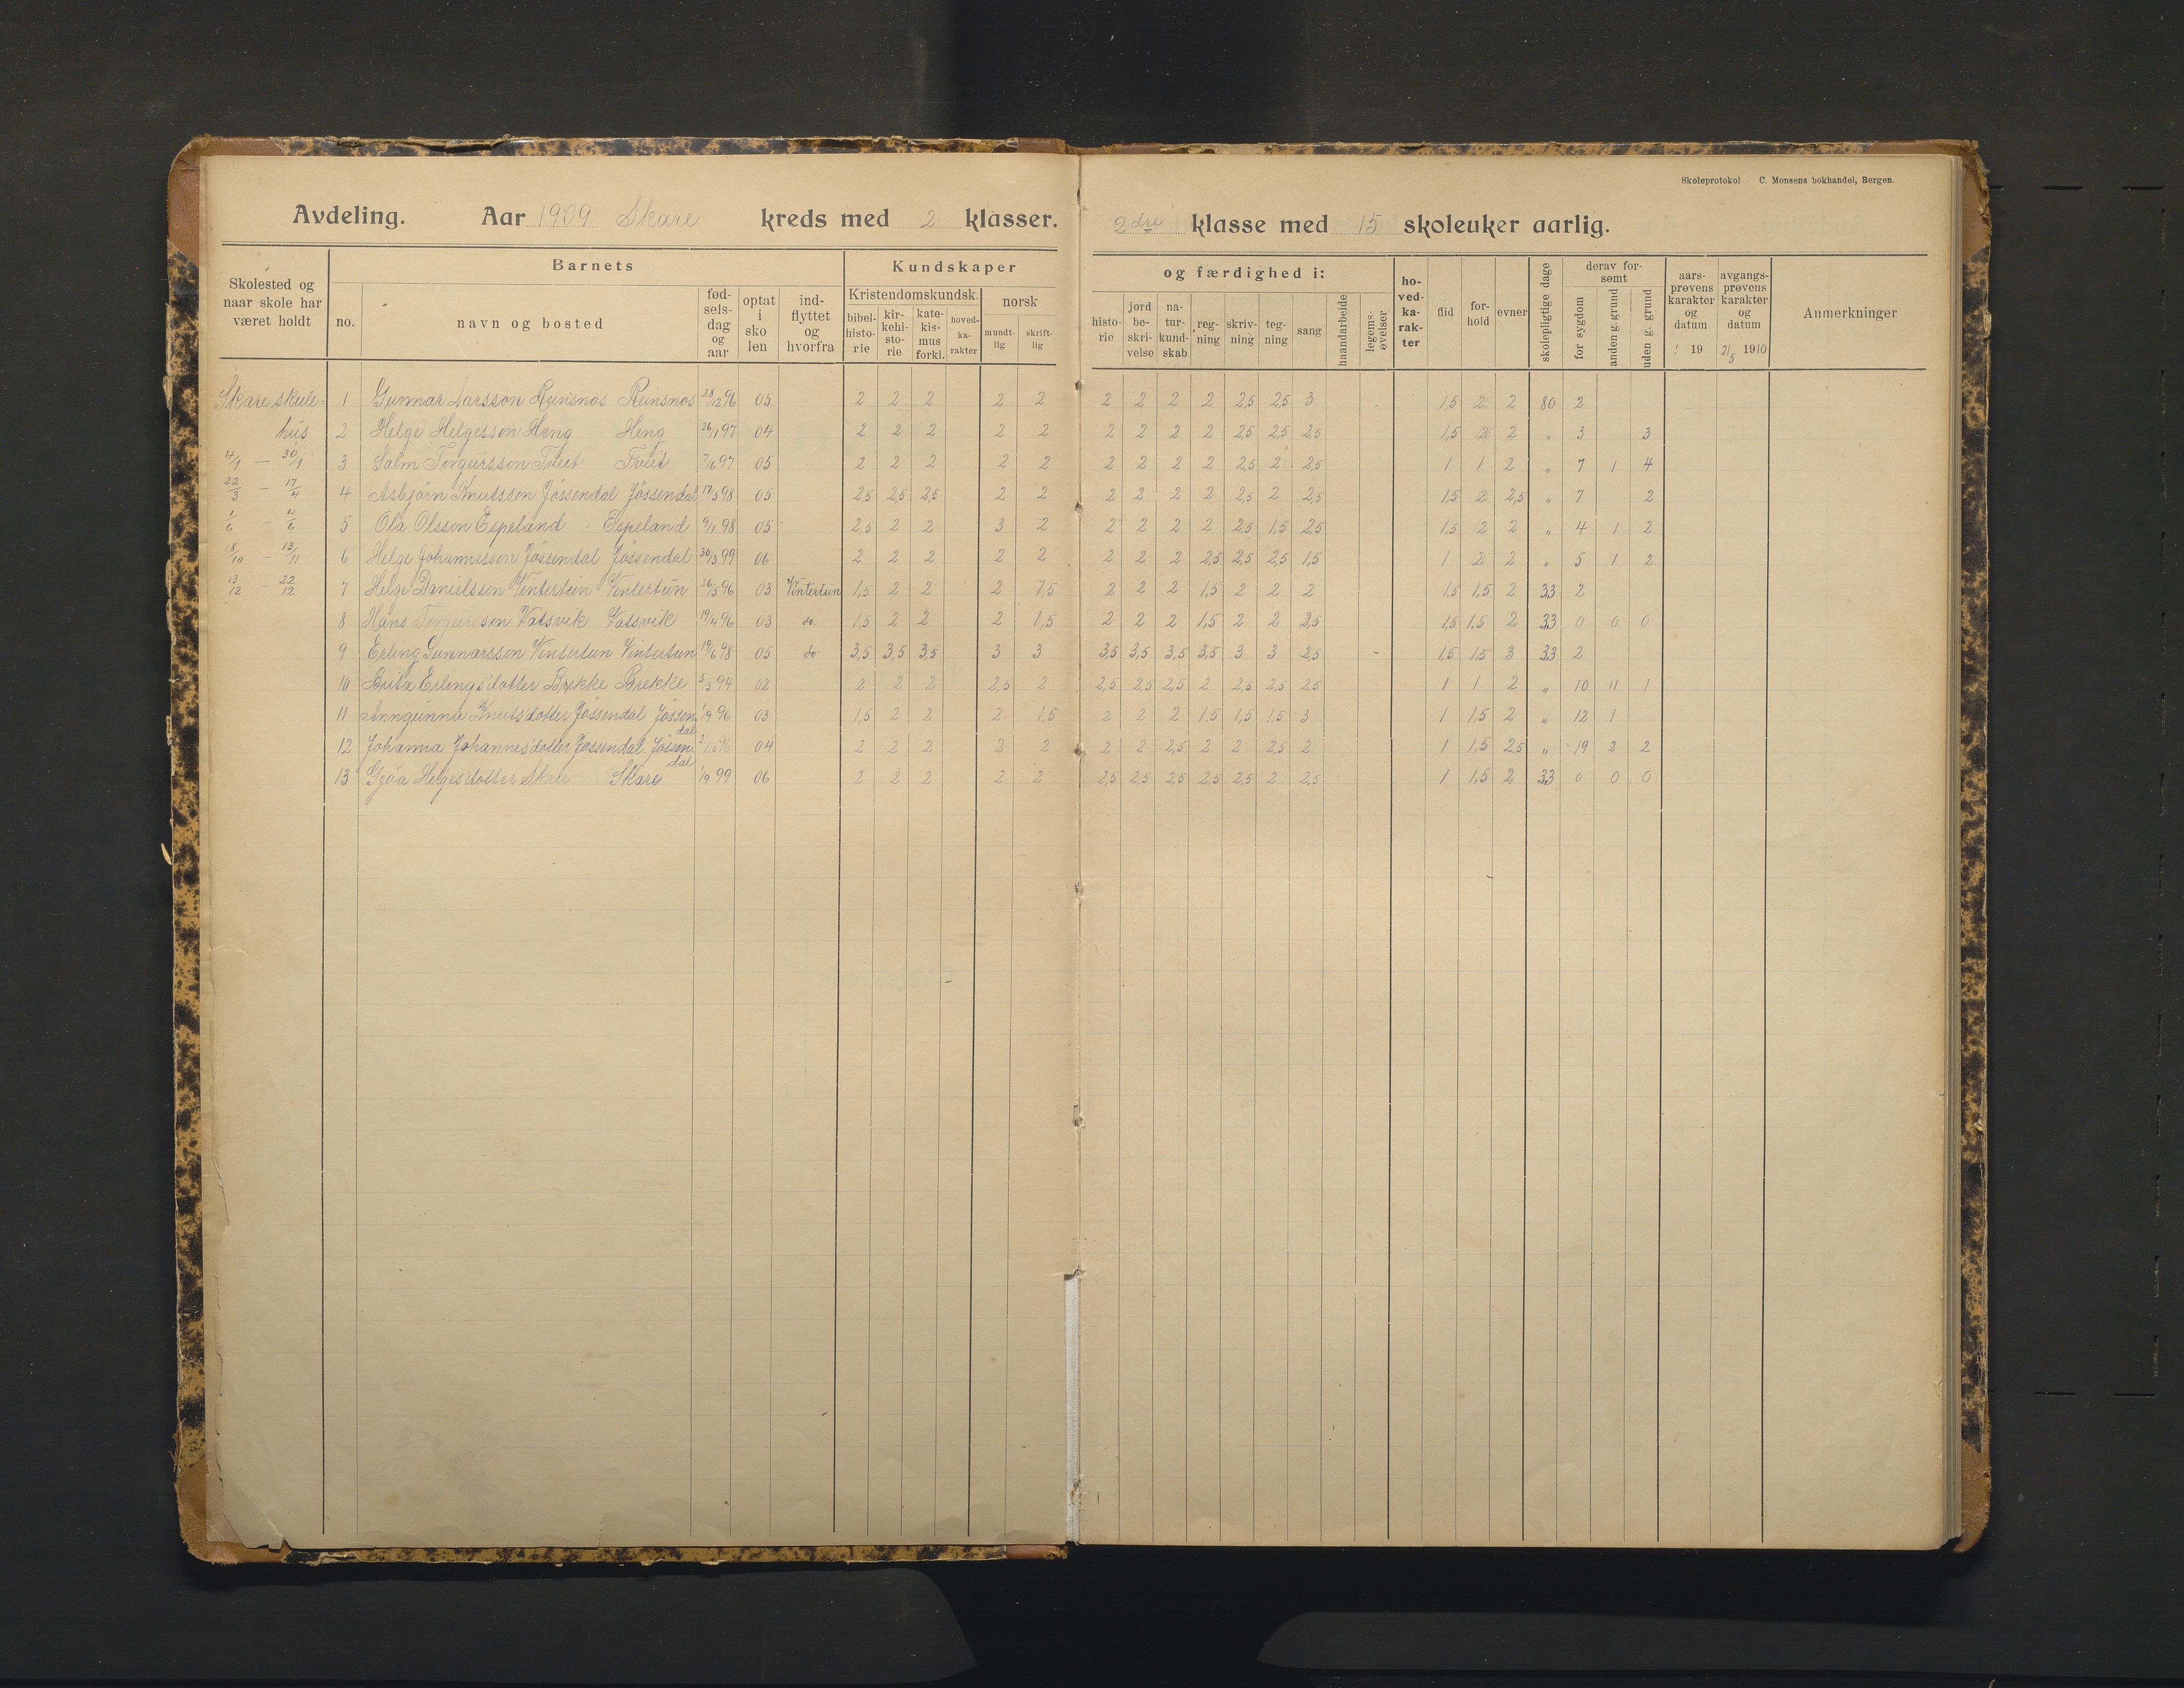 Skoleprotokol – C. Monsens bokhandel, Bergen.
Avdeling. Aar 1909 Skare kreds med 2 klasser. 2dre klasse med 15 skoleuker aarlig.
Skolested og naar skole har været holdt
Barnets
no. navn og bosted fødselsdag og aar optat i skolen indflyttet og hvorfra
Kundskaper og færdighed i:
Kristendomskundsk. norsk
bibelhistorie kirkehistorie katekismus forkl. hovedkarakter mundtlig skriftlig
historie jordbeskrivelse naturkundskab regning skrivning tegning sang haandarbeide legemsøvelser
hovedkarakter flid forhold evner skolepligtige dage
derav forsømt
for sygdom anden g. grund uden g. grund
aarsprøvens karakter og datum / 19
avgangsprøvens karakter og datum 2/5 1910
Anmerkninger
Skare skule- 1 Gunnar Larsson Reinsnos Reinsnos 28/12 96 05 2 2 2 2 2 2 2 2 2 2,5 2,5 3 1,5 2 2 80 2
hus 2 Helge Helgesson Heng Heng 26/1 97 04 2 2 2 2 2 2 2 2 2 2,5 2,5 2,5 1,5 2 2 „ 3 3
4/1 — 30/1 3 Salm Torgeirsson Tveit Tveit 7/6 97 05 2 2 2 2 2 2 2 2 2 2,5 2 2,5 1 1 2 „ 7 1 4
22/3 — 17/4 4 Asbjörn Knutsson Jössendal Jössendal 17/5 98 05 2,5 2,5 2,5 2 2 2 2 2 2 2,5 2 2,5 1,5 2 2,5 „ 7 2
1/6 — /6 5 Ola Olsson Espeland Espeland 9/1 98 05 2,5 2 2 3 2 2 2 2 2 2,5 1,5 2,5 1,5 2 2 „ 4 1 2
18/10 — 13/11 6 Helge Johannesson Jössendal Jössendal 30/3 99 06 2 2 2 2 2 2 2 2 2,5 2,5 2,5 1,5 1 2 2 „ 5 1 2
13/12 — 22/12 7 Helge Danielsson Vintertun Vintertun 26/5 96 03 Vintertun 1,5 2 2 2 1,5 2 2 2 1,5 2 2 2 1,5 1,5 2 33 2
8 Hans Torgeirsson Vatsvik Vatsvik 19/4 96 03 do 1,5 2 2 2 1,5 2 2 2 1,5 2 2 2,5 1,5 1,5 2 33 0 0 0
9 Erling Gunnarsson Vintertun Vintertun 19/6 98 05 do 3,5 3,5 3,5 3 3 3,5 3,5 3,5 3,5 3 3 2,5 1,5 1,5 3 33 2
10 Brita Erlingsdotter Brekke Brekke 5/5 94 02 2 2 2 2,5 2 2,5 2,5 2,5 2 2,5 2,5 2,5 1 1 2 „ 10 11 1
11 Anngunna Knutsdotter Jössendal Jössendal 1/9 96 03 1,5 2 2 2 1,5 2 2 2 1,5 1,5 1,5 3 1 1,5 2 „ 12 1
12 Johanna Johannesdotter Jössendal Jössendal 96 04 2 2 2 2 2 2 2 2,5 2 2 2,5 2 1 1,5 2,5 „ 19 2 2
13 Gjöa Helgesdotter Skare Skare 1/9 99 06 2 2 2 2 2 2,5 2,5 2,5 2,5 2,5 2 2,5 1 1,5 2 33 0 0 0